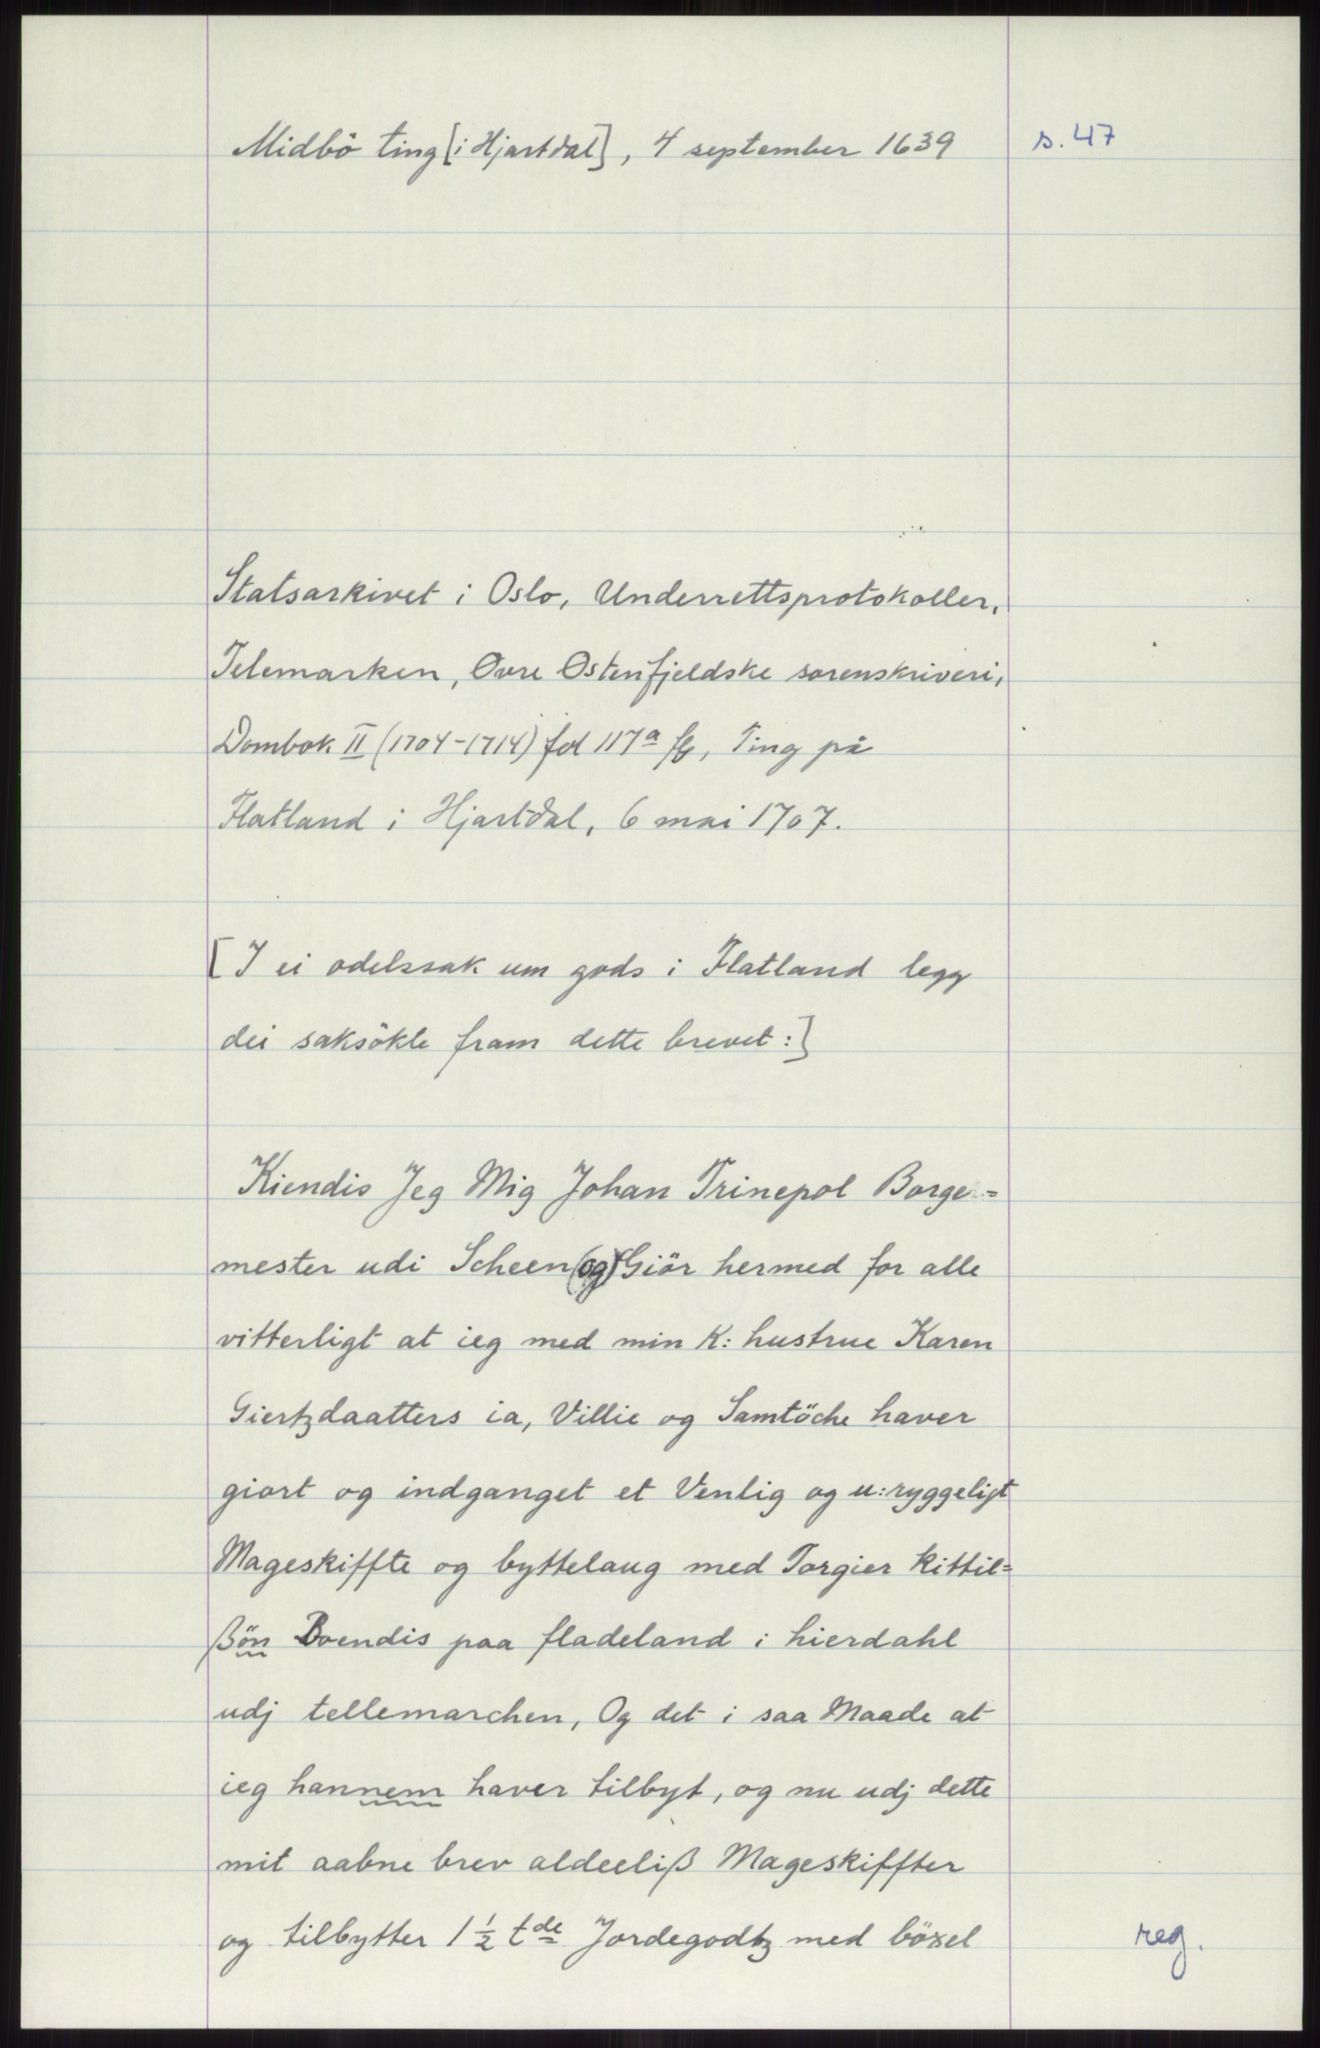 Midbö ting [i Hjartdal], 4 september 1639 s. 47
Statsarkivet i Oslo, Underrettsprotokoller,
Telemarken, Øvre Østenfjeldske sorenskriveri,
Dombok II (1704-1714) fol 117a fg, Ting på
Flatland i Hjartdal, 6 mai 1707.
[I ei odelssak um gods i Flatland legg
dei saksökte fram dette brevet:]
Kiendis Jeg Mig Johan Trinepol Borge=
mester udi Scheen (og) Giör hermed for alle
vitterligt at ieg med min K: hustrue Karen
Giertzdaatters ia, Villie og Samtöche haver
giort og indganget et Venlig og u:ryggeligt
Mageskiffte og byttelaug med Torgier kittil=
ßön Boendis paa fladeland i hierdahl
udj tellemarchen, Og det i saa Maade at
ieg hannem haver tilbyt, og nu udj dette
mit aabne brev aldeeliß Mageskiffter
og tilbytter 1½ tde Jordegodtz med böxel reg.